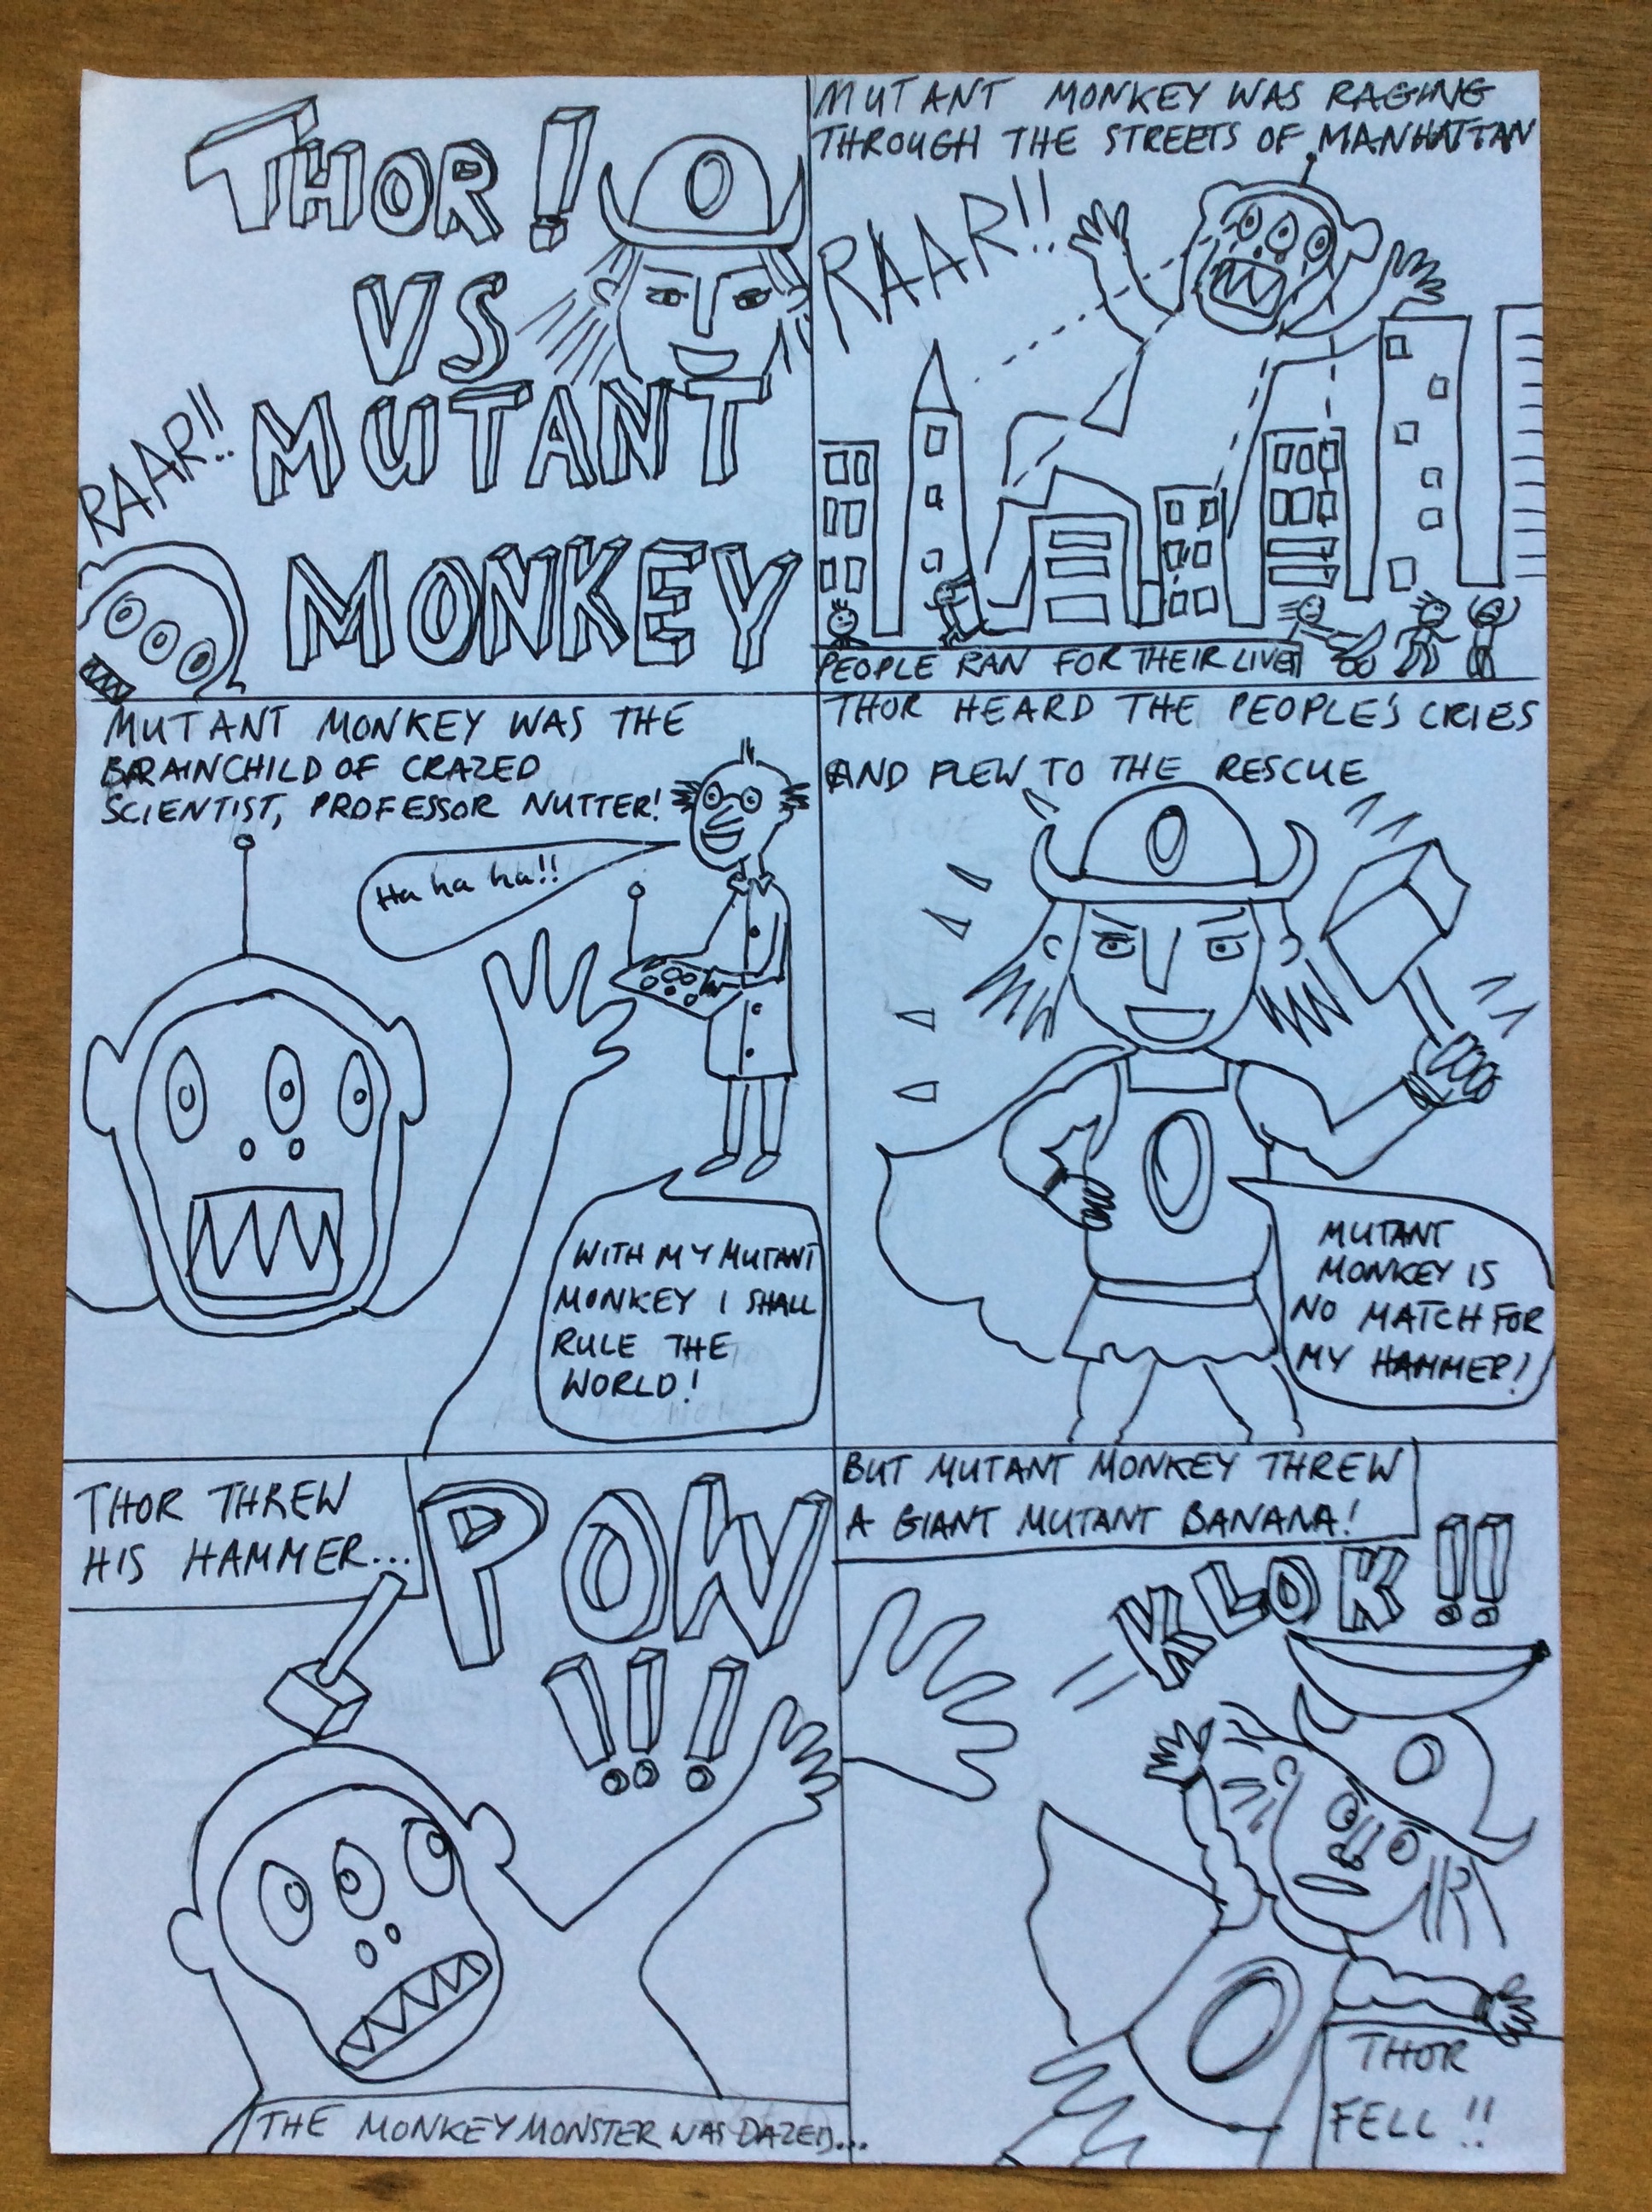 THOR!
VS
MUTANT
MONKEY
RAAR!!
MUTANT MONKEY WAS RAGING
THROUGH THE STREETS OF MANHATTAN
RAAR!!
PEOPLE RAN FOR THEIR LIVES
MUTANT MONKEY WAS THE
BRAINCHILD OF CRAZED
SCIENTIST, PROFESSOR NUTTER!
Ha ha ha!!
WITH MY MUTANT
MONKEY I SHALL
RULE THE
WORLD!
THOR HEARD THE PEOPLE'S CRIES
AND FLEW TO THE RESCUE
MUTANT
MONKEY IS
NO MATCH FOR
MY HAMMER!
THOR THREW
HIS HAMMER...
POW
!!!
THE MONKEY MONSTER WAS DAZED...
BUT MUTANT MONKEY THREW
A GIANT MUTANT BANANA!
KLOK!!
THOR
FELL!!